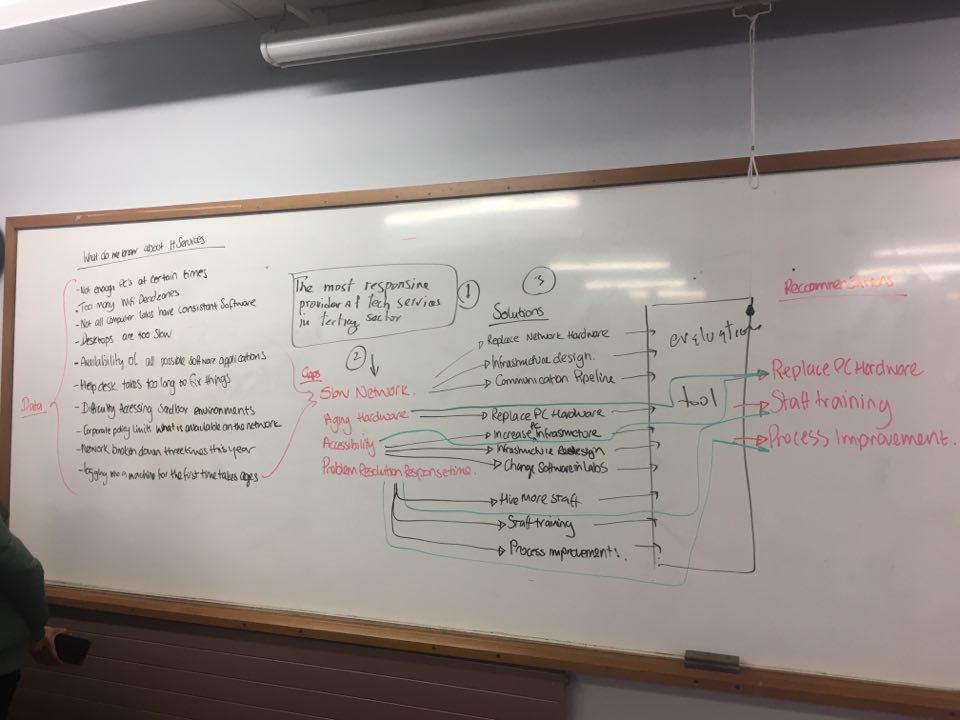 What do we know about IT Services
- Not enough PC's at certain times
- Too many Wifi Deadzones
- Not all computer labs have consistant Software
- Desktops are too Slow
- Availability of all possible Software applications
- Help desk takes too long to fix things
- Difficulty accessing Sandbox environments
- Corporate policy limits what is available on the network
- Network broken down three times this year
- logging into a machine for the first time takes ages
Data
The most responsine
provider of tech services
in tertiry sector
1
2
Gaps
Slow Network.
Aging Hardware
Accessibility
Problem Resolution Response time.
3
Solutions
Replace Network Hardware
Infrastructure design.
Communication Pipeline
Replace PC Hardware
Increase PC Infrastructure
Infrastructure Redesign
Change Software in Labs
Hire More staff
Staff training
Process improvements.
evaluation
tool
Reccommendations
Replace PC Hardware
Staff training
Process Improvement.